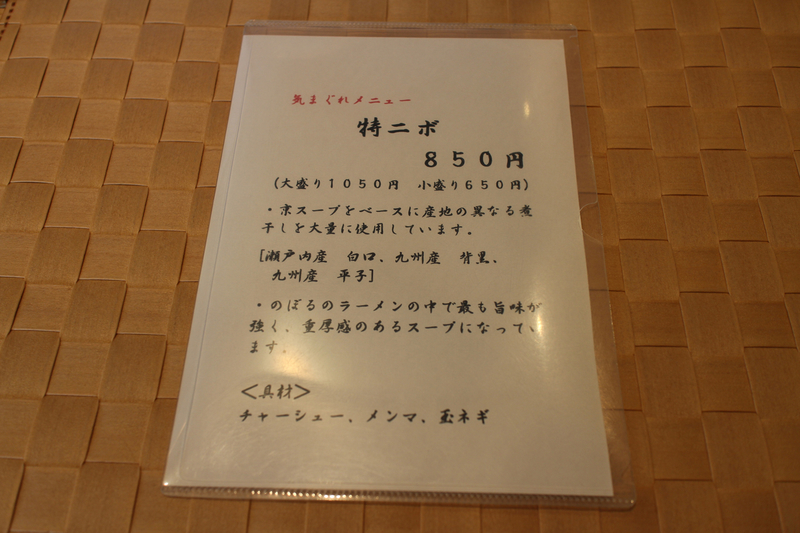 気まぐれメニュー
特ニボ
８５０円
（大盛り１０５０円　小盛り６５０円）
・京スープをベースに産地の異なる煮
干しを大量に使用しています。
［瀬戸内産　白口、九州産　背黒、
九州産　平子］
・のぼるのラーメンの中で最も旨味が
強く、重厚感のあるスープになってい
ます。
＜具材＞
チャーシュー、メンマ、玉ネギ